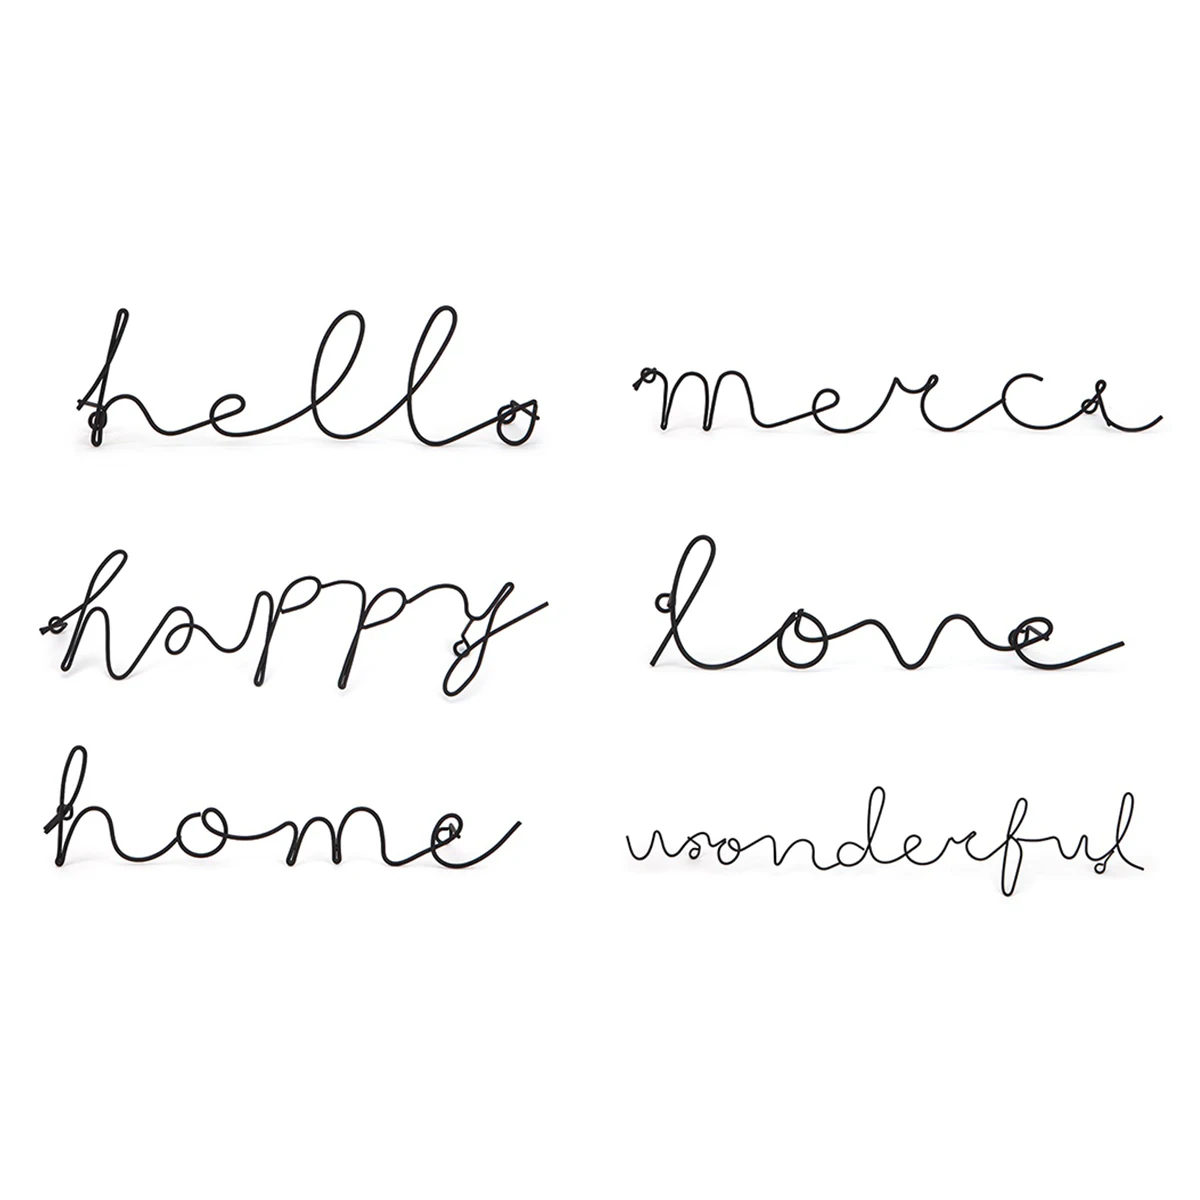 hello
merci
happy
love
home
wonderful